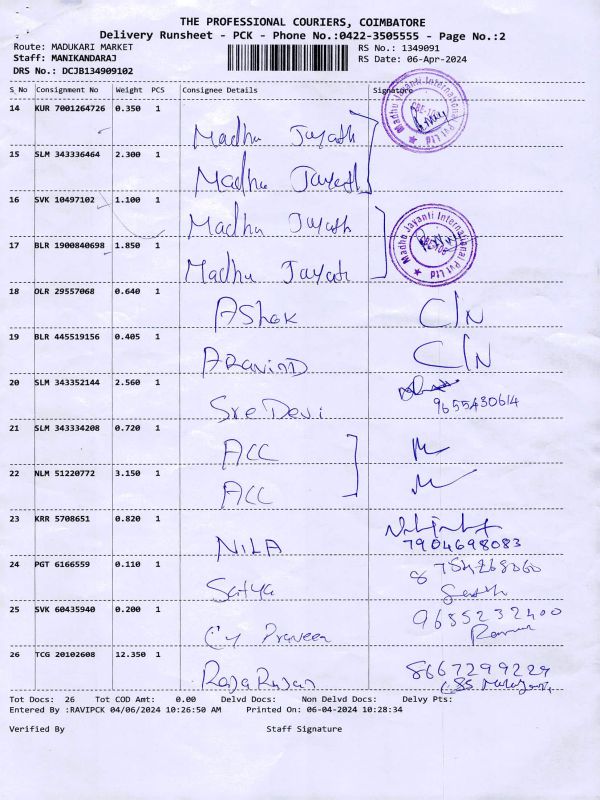 THE PROFESSIONAL COURIERS, COIMBATORE
Delivery Runsheet - PCK - Phone No.:0422-3505555 - Page No.:2
Route: MADUKARI MARKET RS No.: 1349091
Staff: MANIKANDARAJ RS Date: 06-Apr-2024
DRS No.: DCJB134909102
S_No Consignment No Weight PCS Consignee Details Signature
14 KUR 7001264726 0.350 1
Madhu Jayath
Madhu Jayanti International Pvt Ltd
15 SLM 343336464 2.300 1
Madhu Jayath
16 SVK 10497102 1.100 1
Madhu Jayath
Madhu Jayanti International Pvt Ltd
17 BLR 1900840698 1.850 1
Madhu Jayath
18 OLR 29557068 0.640 1
AShok C/N
19 BLR 445519156 0.405 1
ARavinD C/N
20 SLM 343352144 2.560 1
Sre Devi 9655430614
21 SLM 343334208 0.720 1
ACC
22 NLM 51220772 3.150 1
ACC
23 KRR 5708651 0.820 1
NILA 7904698083
24 PGT 6166559 0.110 1
Satya
25 SVK 60435940 0.200 1
Praveen 9655232400
26 TCG 20102608 12.350 1
RajaRajan 8667299229
Tot Docs: 26 Tot COD Amt: 0.00 Delvd Docs: Non Delvd Docs: Delvy Pts:
Entered By :RAVIPCK 04/06/2024 10:26:50 AM Printed On: 06-04-2024 10:28:34
Verified By Staff Signature